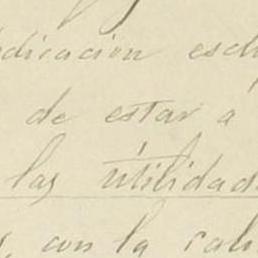 dicacion esc
de estar á
las utilidad
con la cali